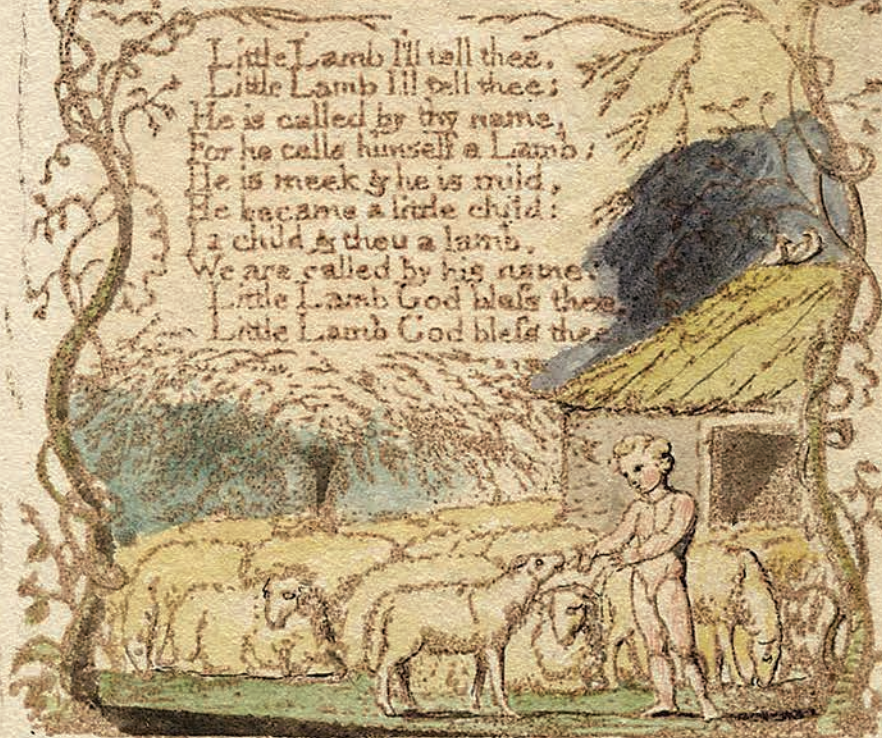 Little Lamb I'll tell thee,
Little Lamb I'll tell thee;
He is called by thy name,
For he calls himself a Lamb:
He is meek & he is mild,
He became a little child:
I a child & thou a lamb,
We are called by his name.
Little Lamb God bless thee.
Little Lamb God bless thee.